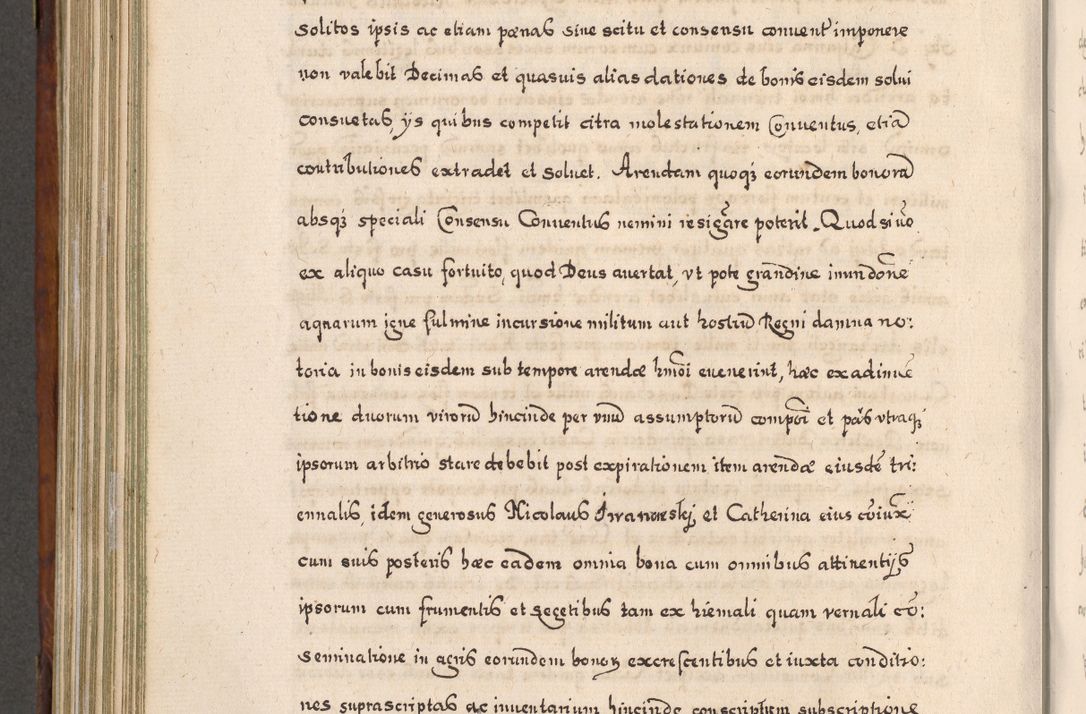 solitos ipsis ac etiam pœnas sine scitu et consensu convent imponere
non valebit Decimas et quasuis alias dationes de bonis eisdem solui
consuetas, ÿs quibus competit citra molestationem Conuentus, etiã
contributiones extradet et soluet. Arendam quoqz eorundem bonorũ
absqz speciali Consensu Conuentus nemini resigãre poterit. Quod si uo
ex aliquo casu fortuito, quod Deus auertat, vt pote grandine inundõne
aquarum igne fulmine incursione militum aut hostiũ Regni damna no:
toria in bonis eisdem sub tempore arendæ hmõi euenerint, hæc ex adinue
tione duorum virorũ hincinde per vnũ assumptorũ compõi et pãs vtraqz
ipsorum arbitrio stare debebit post expirationem item arendæ eiusdẽ tri:
ennalis, idem generosus Nicolaus Iwanowskj et Catherina eius cõiux
cum suis posteris hæc eadem omnia bona cum omnibus attinentÿs
ipsorum cum frumentis et segetibus tam ex hiemali quam vernali cõ:
seminatione in agris eorundem bonoꝝ excrescentibus et iuxta conditio:
nes suprascriptas ac inuentarium hincinde conscriptum subscriptione